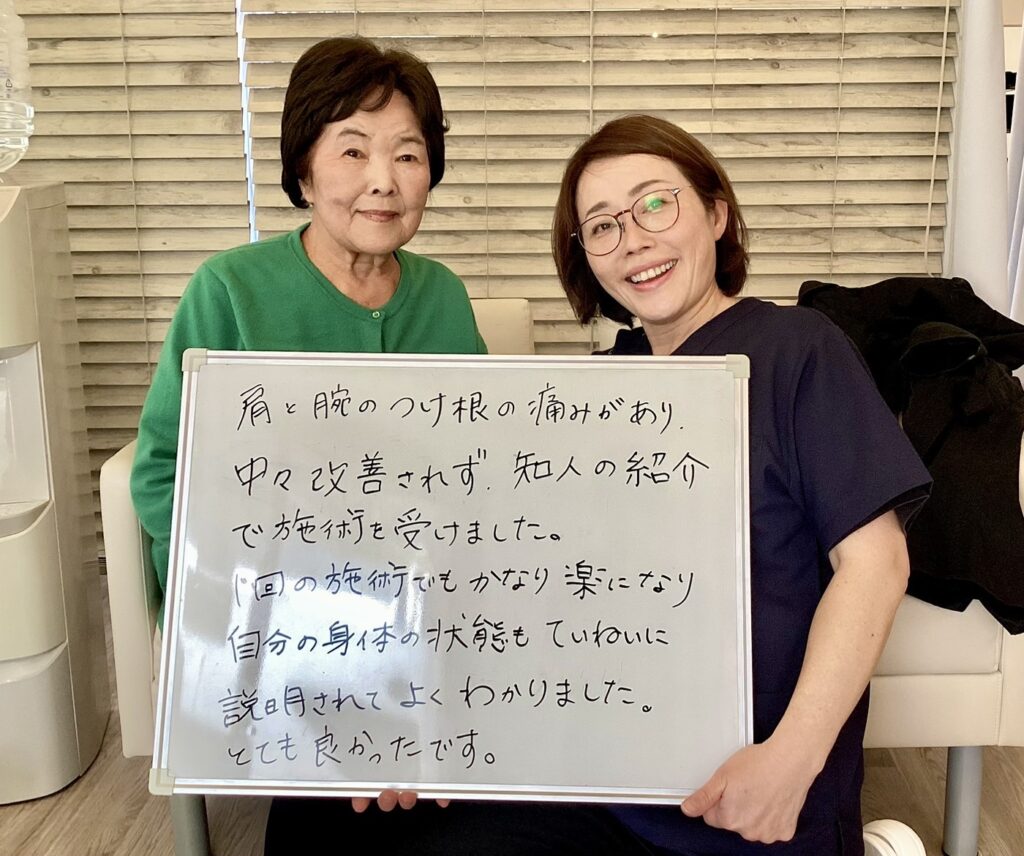 肩と腕のつけ根の痛みがあり、
中々改善されず、知人の紹介
で施術を受けました。
1回の施術でもかなり楽になり
自分の身体の状態もていねいに
説明されてよくわかりました。
とても良かったです。